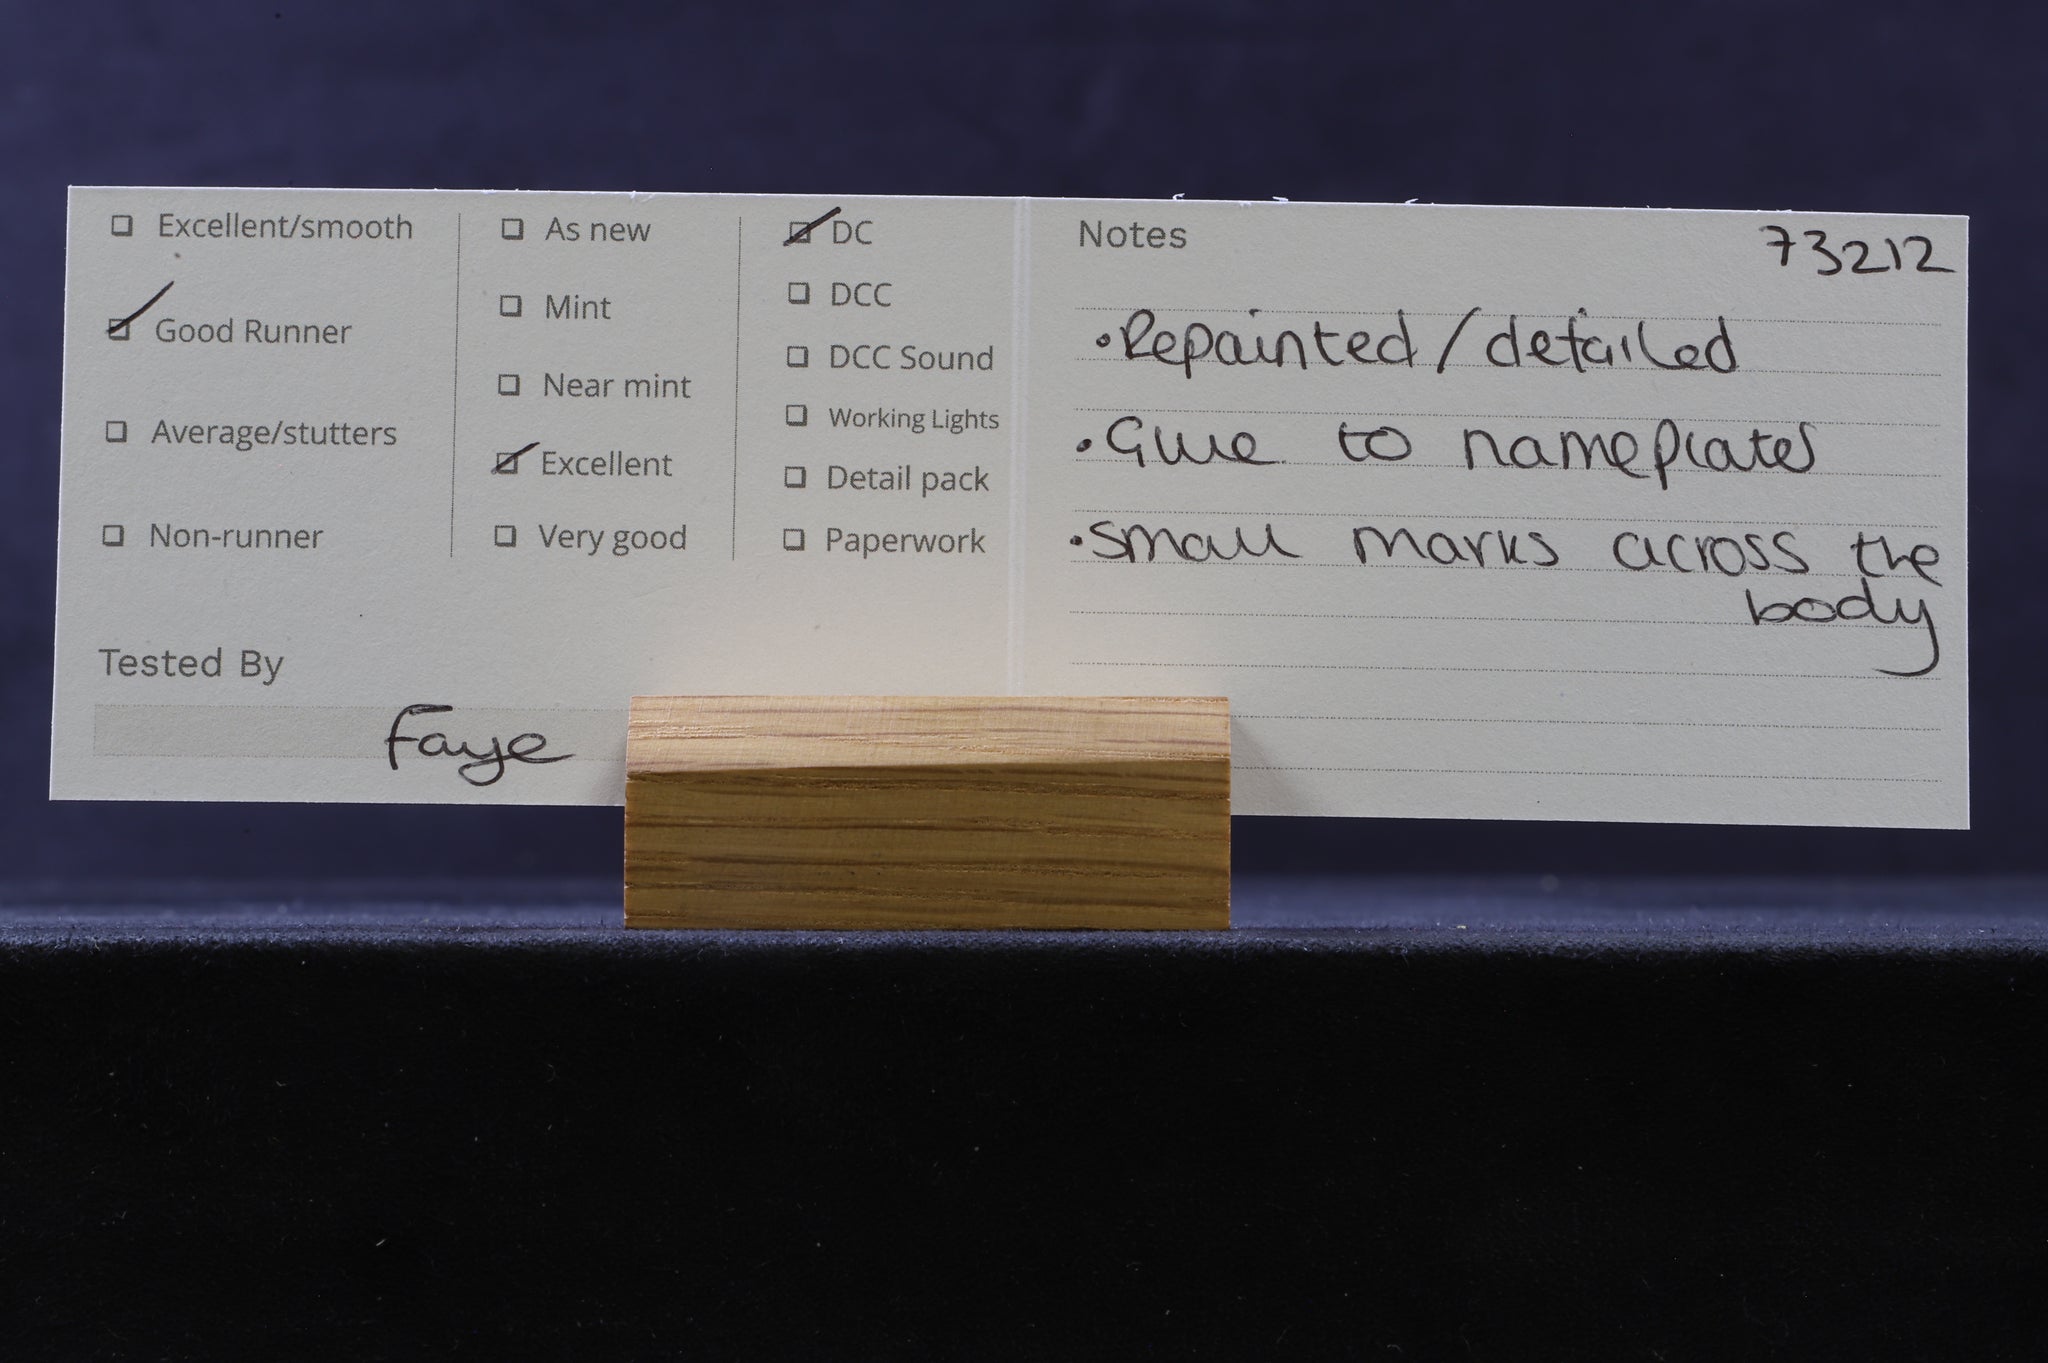 ☐ Excellent/smooth
☑ Good Runner
☐ Average/stutters
☐ Non-runner
☐ As new
☐ Mint
☐ Near mint
☑ Excellent
☐ Very good
☑ DC
☐ DCC
☐ DCC Sound
☐ Working Lights
☐ Detail pack
☐ Paperwork
Tested By
Faye
Notes
73212
• Repainted/detailed
• Glue to nameplates
• small marks across the
body